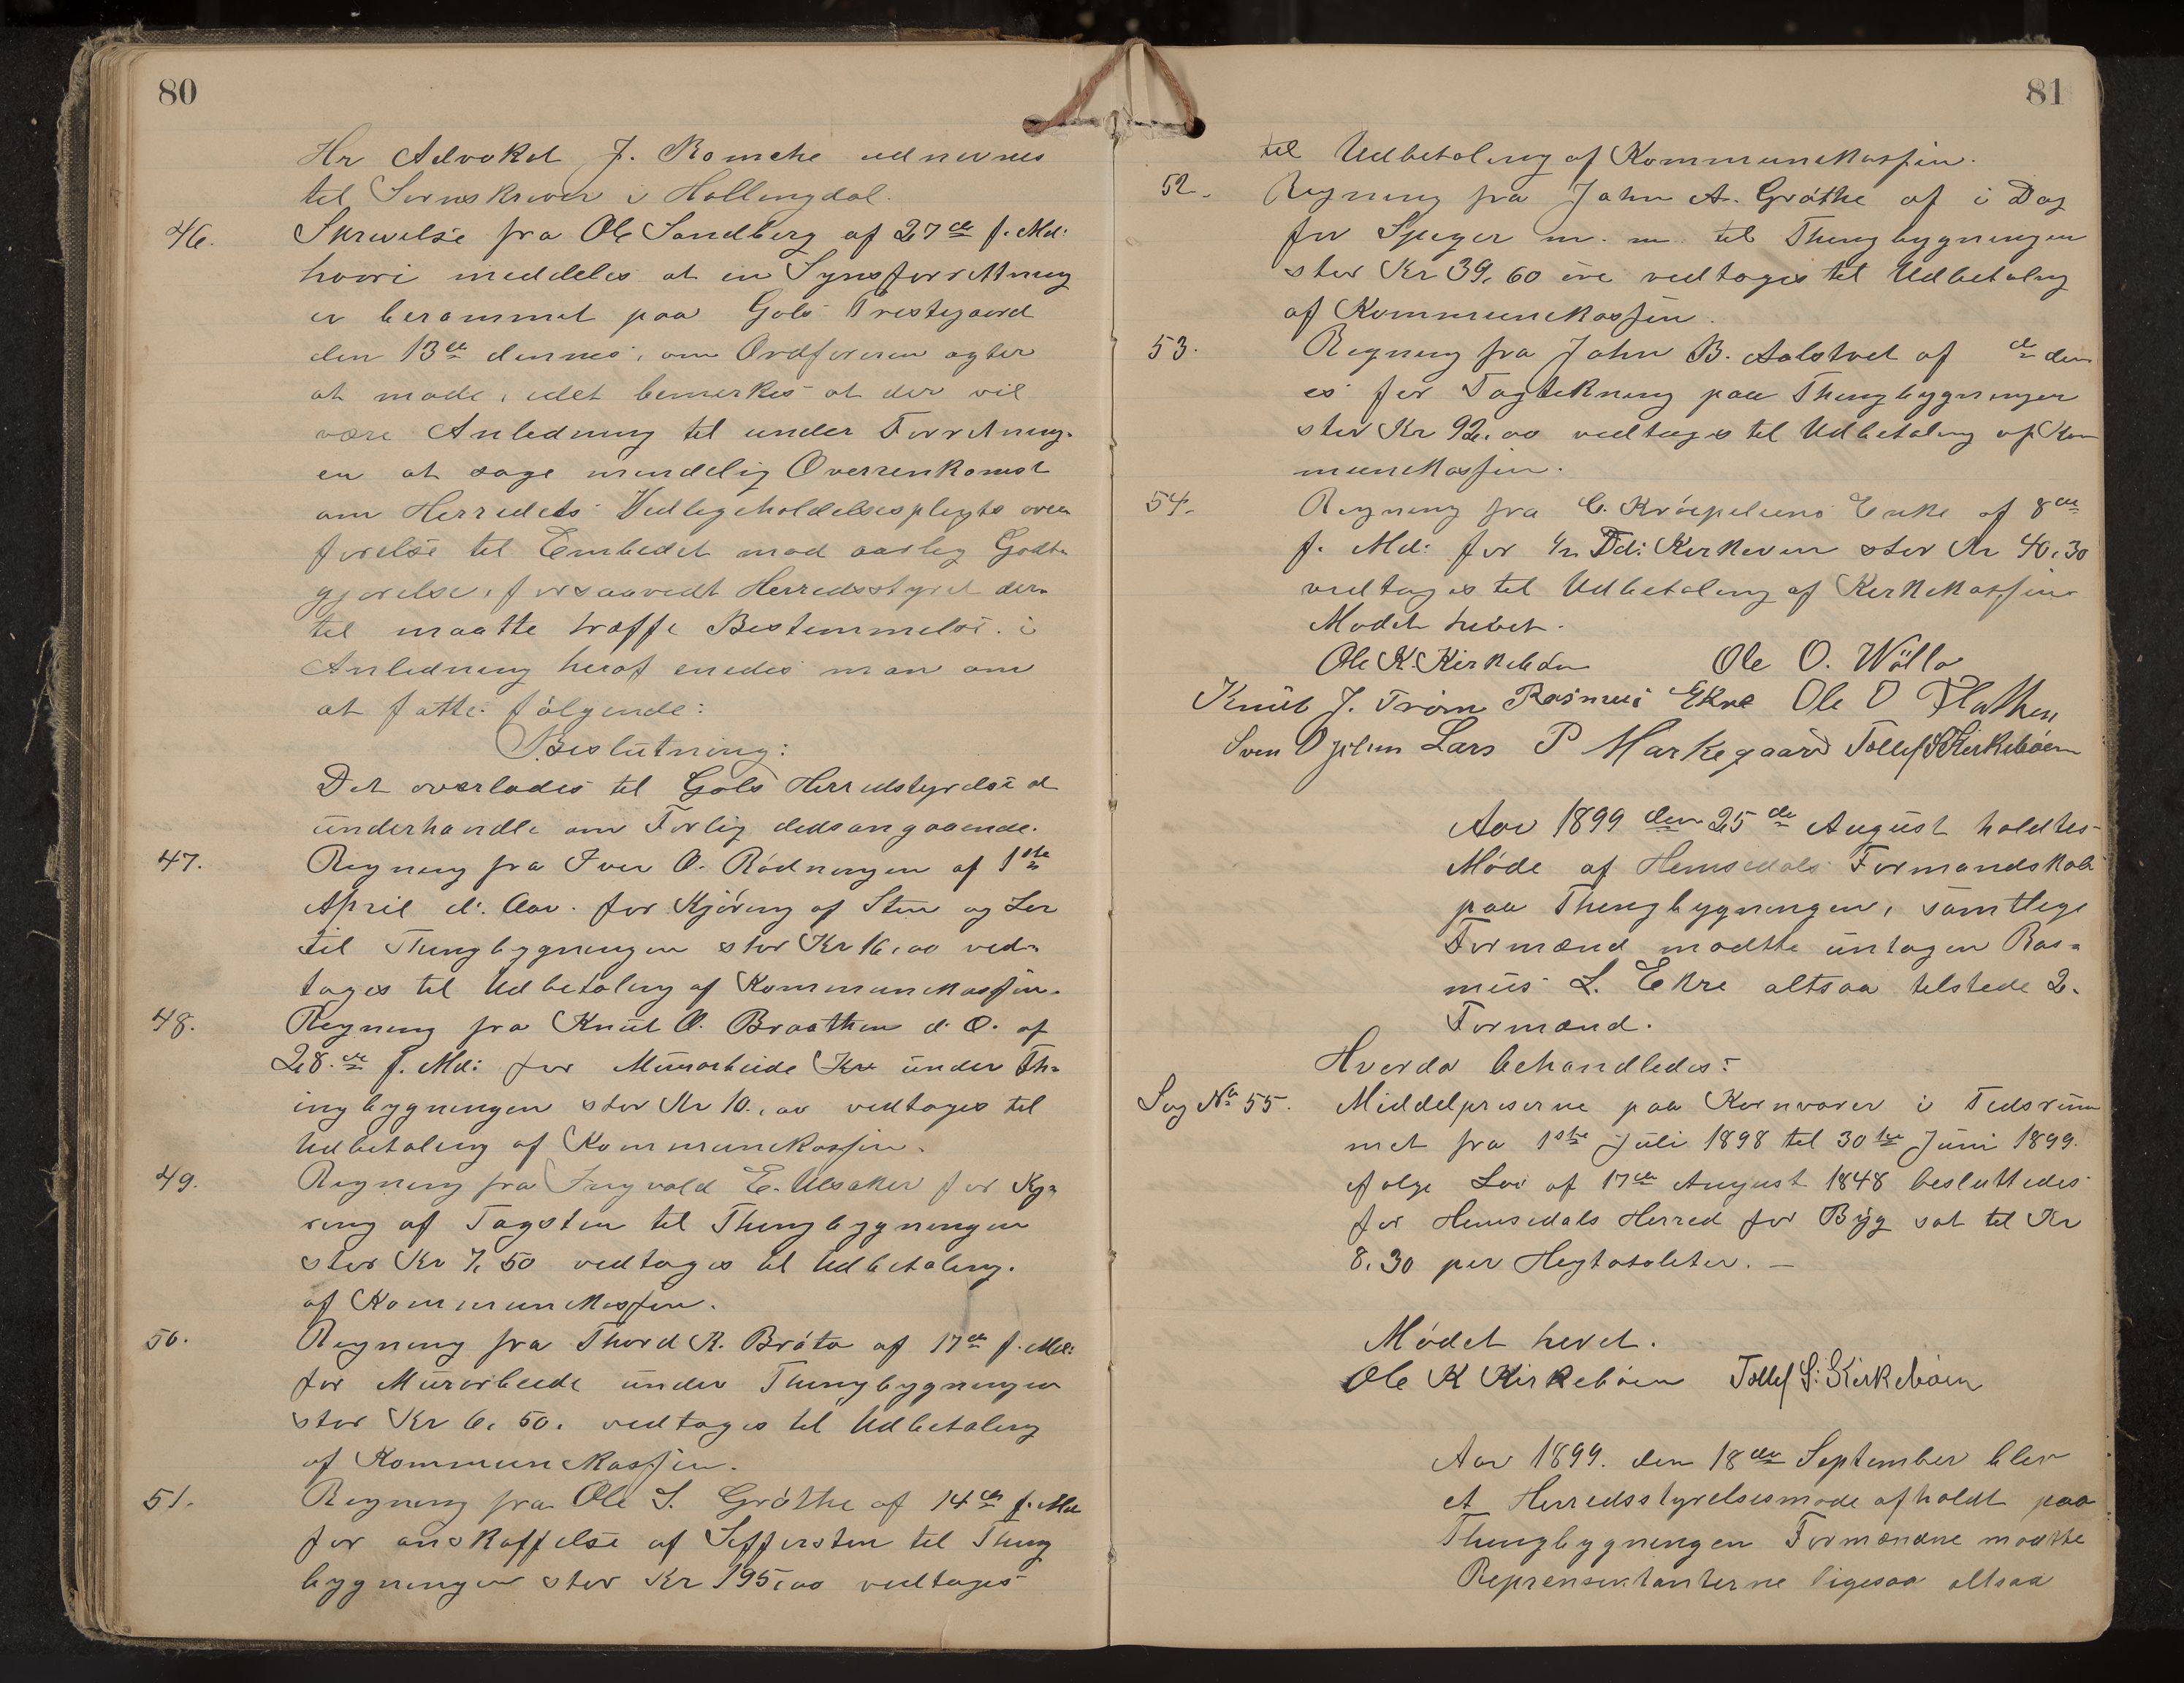 80
Hr Advokat J. Romcke udnevnes
til Sornskriver i Hallingdal.
46. Skrivelse fra Ole Sandberg af 27de f. Md:
hvori meddeles at en Synsforretning
er berammet paa Gols Prestegaard
den 13de dennes, om Ordføreren agter
at møde, idet bemerkes at der vil
være Anledning til under Forretning-
en at søge mindelig Overrenkomst
om Herredets Vedligeholdelsesplegts over
førelse til Embedet mod aarlig Godt-
gjørelse, forsaavidt Herredsstyret der-
til maatte træffe Bestemmelse. i
Anledning heraf enedes man om
at fatte følgende:
Beslutning:
Det overlades til Gols Herredstyrelse at
underhandle om Forlig dedsangaaende.
47. Regning fra Iver O. Rødningen af 1ste
April d. Aar. for Kjøring af Sten og Ler
til Thingbygningen stor Kr 16,00 ved-
tages til Udbetaling af Kommunekassen.
48. Regning fra Knut O. Braathen d. O. af
28.de f. Md: for Murarbeide Kr under Th-
ingbygningen stor Kr 10.,00 vedtages til
Udbetaling af Kommunekassen.
49. Regning fra Ingvald E. Ulsaker for Kjø-
ring af Tagsten til Thingbygningen
stor Kr 7,50 vedtages til Udbetaling.
af Kommunekassen.
50. Regning fra Thord R. Bråta af 17de f. Md:
for Murarbeide under Thingbygningen
stor Kr 6,50. vedtages til Udbetaling
af Kommunekassen.
51. Regning fra Ole S. Grøthe af 14de f. Md
for anskaffelse af Seffersten til Thing
bygningen stor Kr 195,00 vedtages
81
til Udbetaling af Kommunekassen.
52. Regning fra John A. Grøthe af i Dag
for Spiger m. m. til Thingbygningen
stor Kr 39,60 øre vedtages til Udbetaling
af Kommunekassen.
53. Regning fra John B. Aalstvet af de den
es for Tagtekning paa Thingbygningen
stor Kr 92,00 vedtages til Udbetaling af Kom
munekassen.
54. Regning fra C. Krøepeliens Enke af 8de
f. Md: for 1/2 Td: Kirkevin stor Kr 40,30
vedtages til Udbetaling af Kirkekassen
Mødet hevet.
Ole K. Kirkebøen Ole O. Wøllo
Knut J. Trøim Rasmus Ekre Ole O Flathen
Sven O Lars P Markegaard Tollef S Kirkebøen
Aar 1899 den 25de August holdtes
Møde af Hemsedals Formandskab
paa Thingbygningen, samtlige
Formænd mødte untagen Ras-
mus L. Ekre altsaa tilstede 2.
Formænd.
Hvorda behandledes:
Sag No 55. Middelpriserne paa Kornvarer i Tidsrum
met fra 1ste Juli 1898 til 30te Juni 1899.
ifølge Lov af 17de August 1848 besluttedes
for Hemsedals Herred for Byg sat til Kr
8,30 per Hegtotoleter. —
Mødet hevet.
Ole K Kirkebøen Tollef S: Kirkebøen
Aar 1899. den 18de September blev
et Herredsstyrelsesmøde afholdt paa
Thingbygningen Formændne mødte
Reprensentanterne ligesaa altsaa